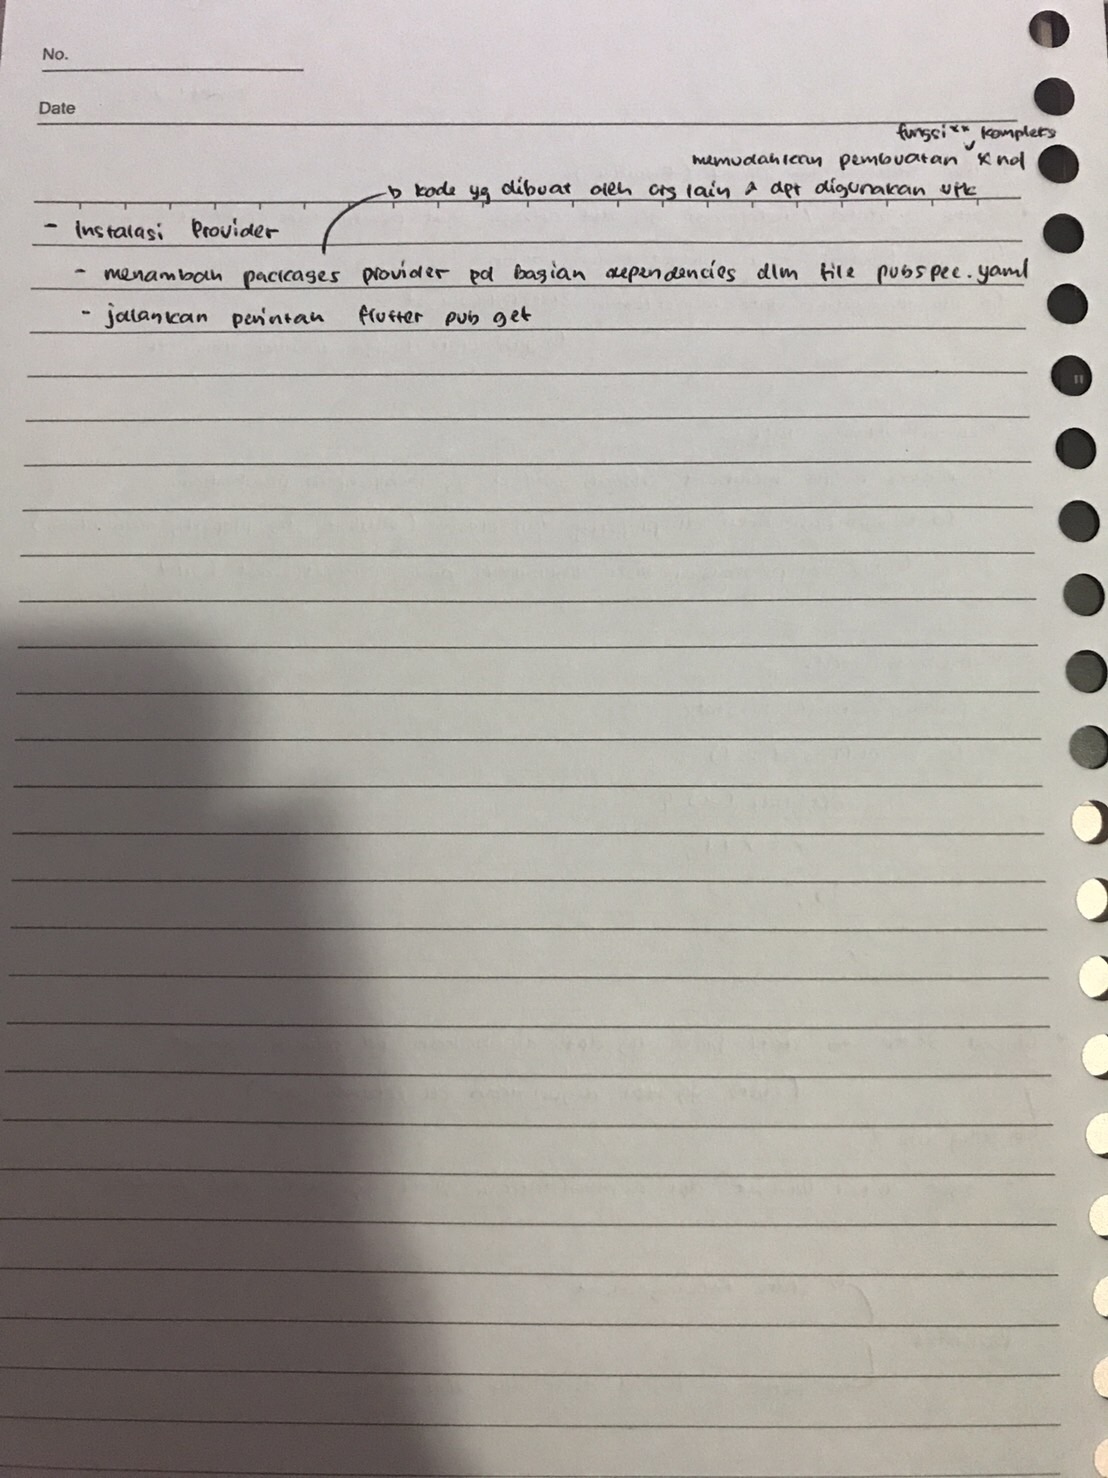 No.
Date
fungsi" kompleks
memudahkan pembuatan x nol
kode yg dibuat oleh org lain & dpt digunakan utk
- Instalasi Provider
- menambah packages provider pd bagian dependencies dlm file pubspec.yaml
- jalankan perintah flutter pub get